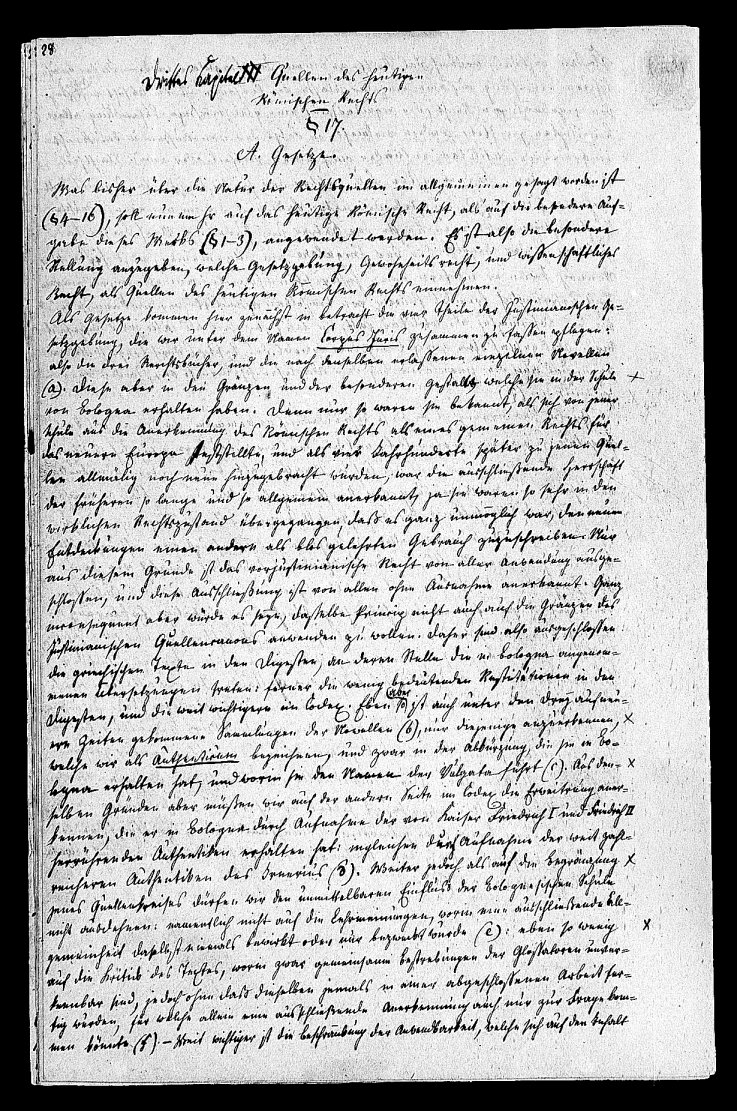 28
Drittes Kapitel Quellen des heutigen
Römischen Rechts
§ 17.
A. Gesetze.
Was bisher über die Natur der Rechtsquellen im allgemeinen gesagt worden ist
(§ 4–16), soll nunmehr auf das heutige Römische Recht, als auf die besondere Auf-
gabe dieses Werks (§ 1–3), angewendet werden. Es ist also die besondere
Stellung anzugeben, welche Gesetzgebung, Gewohnheitsrecht, und wissenschaftliches
Recht, als Quellen des heutigen Römischen Rechts einnehmen.
Als Gesetze kommen hier zunächst in betracht die vier Theile der Justinianischen Ge-
setzgebung, die wir unter dem Namen Corpus Juris zusammen zu fassen pflegen:
also die drei Rechtsbücher, und die nach denselben erlassenen einzelnen Novellen
(a). Diese aber in den Gränzen und der besonderen Gestalt, welche sie in der Schule
von Bologna erhalten haben. Denn nur so waren sie bekannt, als sich von jener
Schule aus die Anerkennung des Römischen Rechts als eines gemeinen Rechts für
das neuere Europa feststellte, und als vier Jahrhunderte später zu jenen Quel-
len allmälig noch neue hinzugebracht wurden, war die ausschließende Herrschaft
der früheren so lange und so allgemein anerkannt, ja sie waren so sehr in den
wirklichen Rechtszustand übergegangen, daß es ganz unmöglich war, den neuen
Entdeckungen einen andern als blos gelehrten Gebrauch zuzuschreiben. Nur
aus diesem Grunde ist das vorjustinianische Recht von aller Anwendung ausge-
schlossen, und diese Ausschließung ist von allen ohne Ausnahme anerkannt. Ganz
inconsequent aber würde es seyn, dasselbe Princip nicht auch auf die Gränzen des
Justinianischen Quellencanons anwenden zu wollen. Daher sind also ausgeschlossen:
die griechischen Texte in den Digesten, an deren Stelle die in Bologna angenom-
menen Übersetzungen treten: ferner die wenig bedeutenden Restitutionen in den
Digesten, und die weit wichtigern im Codex. Eben so ist aber auch unter den drey auf neu-
ere Zeiten gekommene Sammlungen der Novellen (b), nur diejenige anzuerkennen,
welche wir als Authenticum bezeichnen, und zwar in der Abkürzung, die sie in Bo-
logna erhalten hat, und worin sie den Namen der Vulgata führt (c). Aus den-
selben Gründen aber müssen wir auf der andern Seite im Codex die Erweiterung aner-
kennen, die er in Bologna durch Aufnahme der von Kaiser Friedrich I und Friedrich II
herrührenden Authentiken erhalten hat: ingleichen durch Aufnahme der weit zahl-
reicheren Authentiken des Irnerius (d). Weiter jedoch als auf die Begränzung
jenes Quellenkreises dürfen wir den unmittelbaren Einfluß der Bolognesischen Schule
nicht ausdehnen: namentlich nicht auf die Lehrmeinungen, worin eine ausschließende All-
gemeinheit daselbst niemals bewirkt oder nur bezweckt wurde (e): eben so wenig
auf die Kritik des Textes, worin zwar gemeinsame Bestrebungen der Glossatoren unver-
kennbar sind, jedoch ohne daß dieselben jemals in einer abgeschlossenen Arbeit fer-
tig würden, für welche allein eine ausschließende Anerkennung auch nur zur Frage kom-
men könnte (f). – Weit wichtiger ist die Beschränkung der Anwendbarkeit, welche sich auf den Inhalt